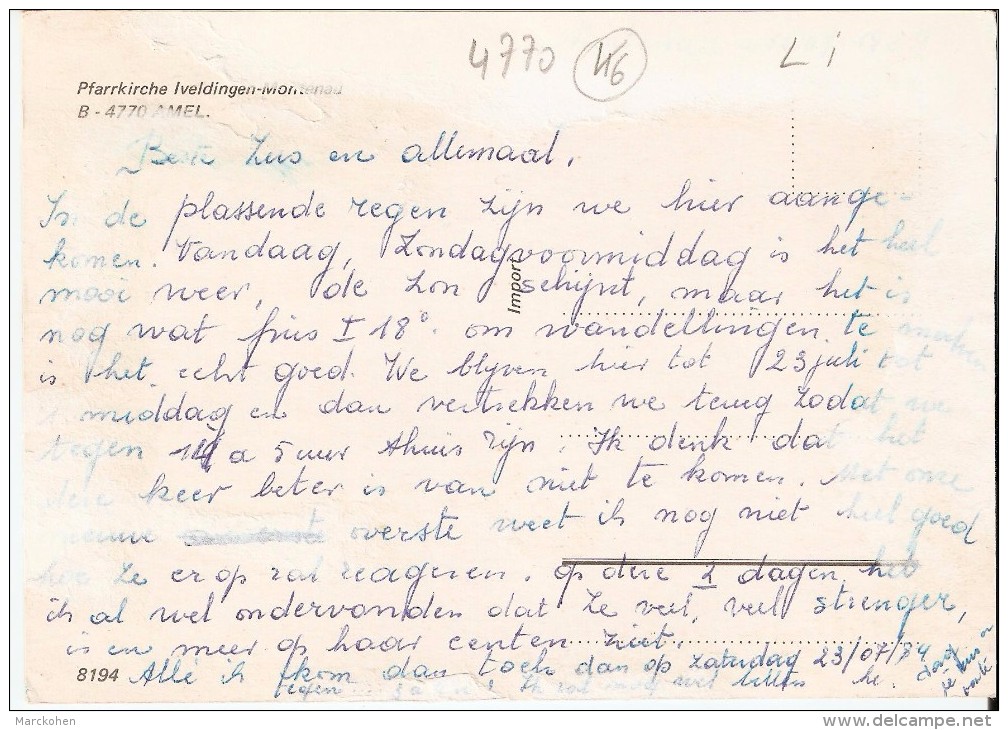 4770 46 Li
Pfarrkirche Iveldingen-Montenau
B - 4770 AMEL.
Beste Zus en allemaal,
In de plassende regen zijn we hier aange-
komen. Vandaag, Zondagvoormiddag is het heel
mooi weer, de zon schijnt, maar het is
nog wat fris ± 18° om wandellingen te maken
is het echt goed. We blijven hier tot 23 juli tot
's middag en dan vertrekken we terug zodat we
tegen 4 a 5 uur thuis zijn. Ik denk dat het
deze keer beter is van niet te komen. Met onze
nieuwe overste weet ik nog niet heel goed
hoe ze erop zal reageren. Op deze 2 dagen heb
ik al wel ondervonden dat ze veel, veel strenger,
is en meer op haar centen ziet.
Allé ik kom dan toch dan op zaterdag 23/07/
tegen Ik zal nog wel
Import
8194
Marckohen
delcampe.net